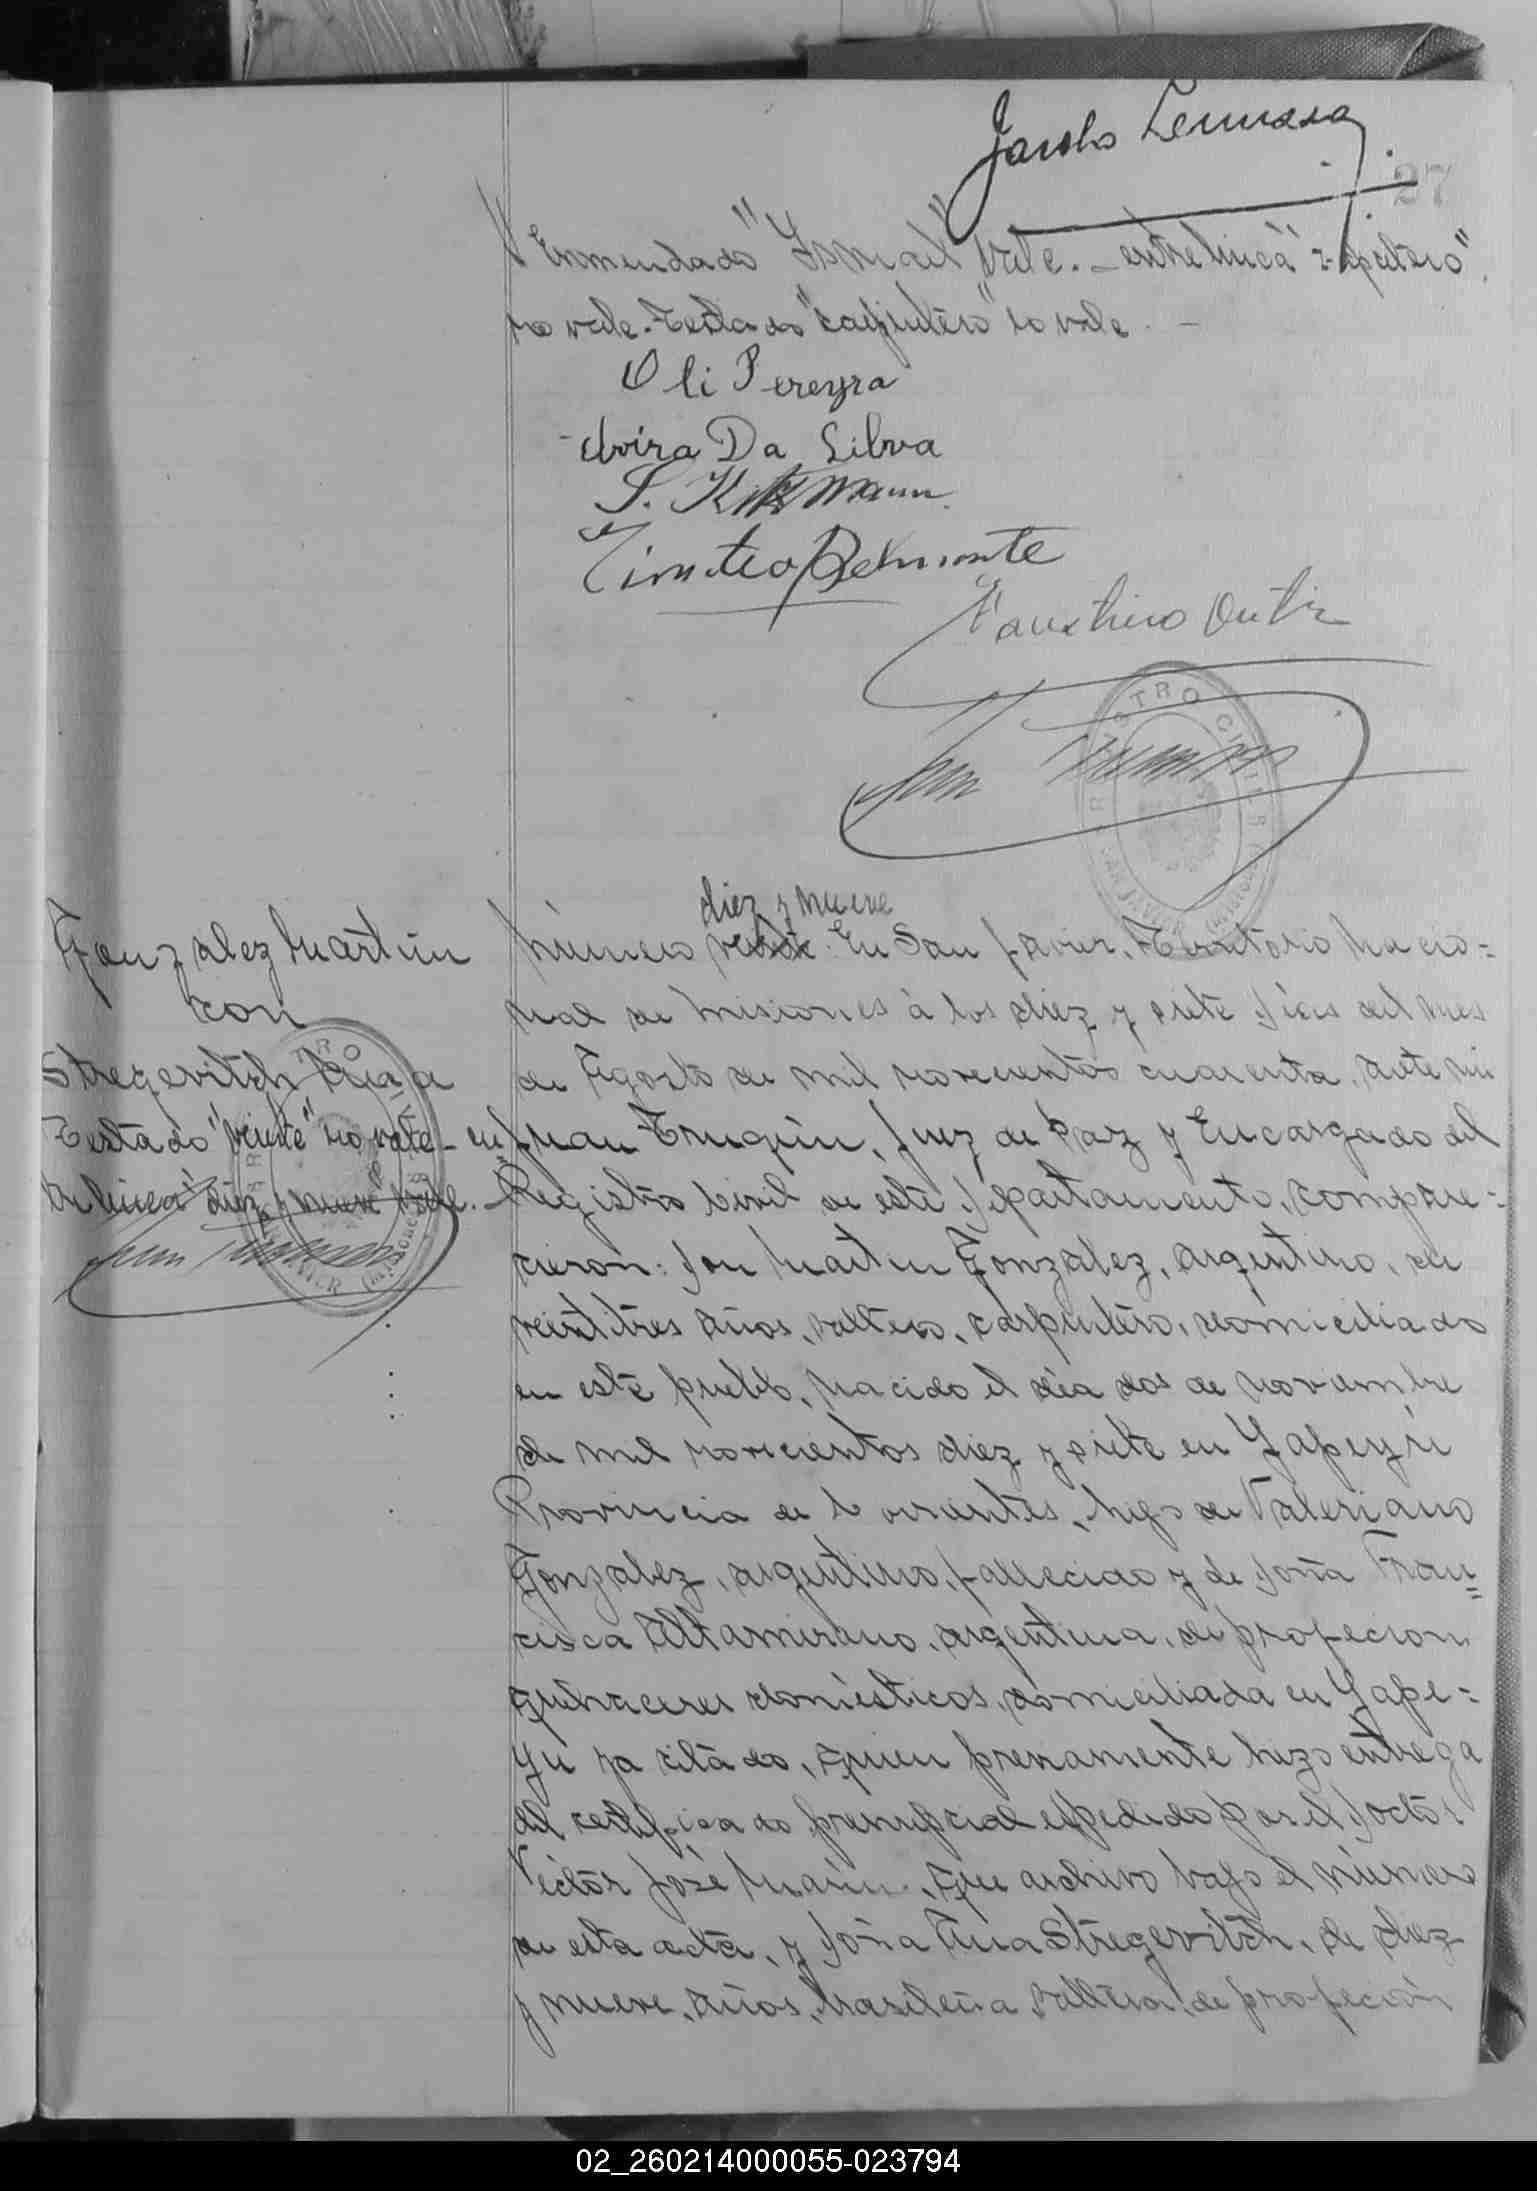 Jacobo Lemosa
27
Enmendado "Ismael" Vale. - entrelinea "zapatero"
no vale. Testado "carpintero" no vale. -
Oli Pereyra
Elvira Da Silva
S. Kitzmann
Timoteo Belmonte
Faustino Ortiz
Juan Truquin
REGISTRO CIVIL SAN JAVIER (MISIONES)
Gonzalez Martin
con
Stregevitch Ana
Testado "veinte" no vale - en
trelinea "diez y nueve" vale. -
Juan Truquin
REGISTRO CIVIL SAN JAVIER (MISIONES)
diez y nueve
Número veinte: En San Javier, Territorio Nacio=
nal de Misiones à los diez y siete días del mes
de Agosto de mil novecientos cuarenta, ante mi
Juan Truquin, Juez de Paz y Encargado del
Registro Civil de este Departamento, compare=
cieron: Don Martin González, argentino, de
veintitres años, soltero, carpintero, domiciliado
en este pueblo, nacido el día dos de noviembre
de mil novecientos diez y siete en Yapeyú
Provincia de Corrientes, hijo de Valeriano
González, argentino, fallecido y de Doña Fran=
cisca Altamirano, argentina, de profecion
quehaceres domésticos, domiciliada en Yape=
yu ya citado, quien previamente hizo entrega
del certificado prenupcial espedido por el Doctor
Victor José Marin, que archivo bajo el número
de esta acta, y Doña Ana Stregevitch, de diez
y nueve años, brasileña, soltera, de profeción
02_260214000055-023794